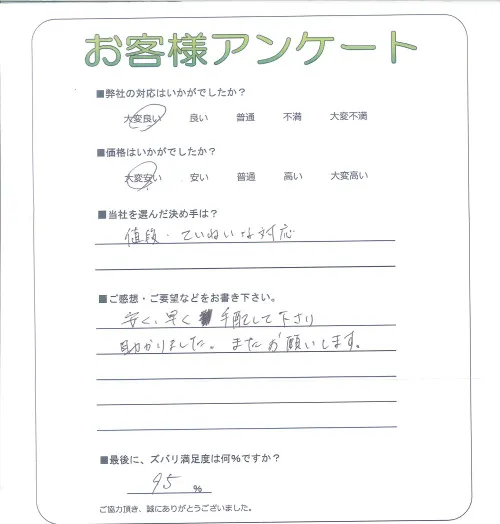 お客様アンケート
■弊社の対応はいかがでしたか？
大変良い 良い 普通 不満 大変不満
■価格はいかがでしたか？
大変安い 安い 普通 高い 大変高い
■当社を選んだ決め手は？
値段・ていねいな対応
■ご感想・ご要望などをお書き下さい。
安く、早く 手配して下さり
助かりました。またお願いします。
■最後に、ズバリ満足度は何％ですか？
95 ％
ご協力頂き、誠にありがとうございました。